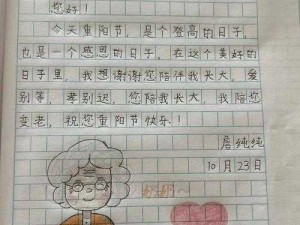 您好！
今天重阳节，是个登高的日子，
也是一个感恩的日子，在这个美好的
日子里，我想谢谢您陪伴我长大，爱
别等，孝别迟，您陪我长大，我陪您
变老，祝您重阳节快乐！
居纯纯
10月23日
奶奶~